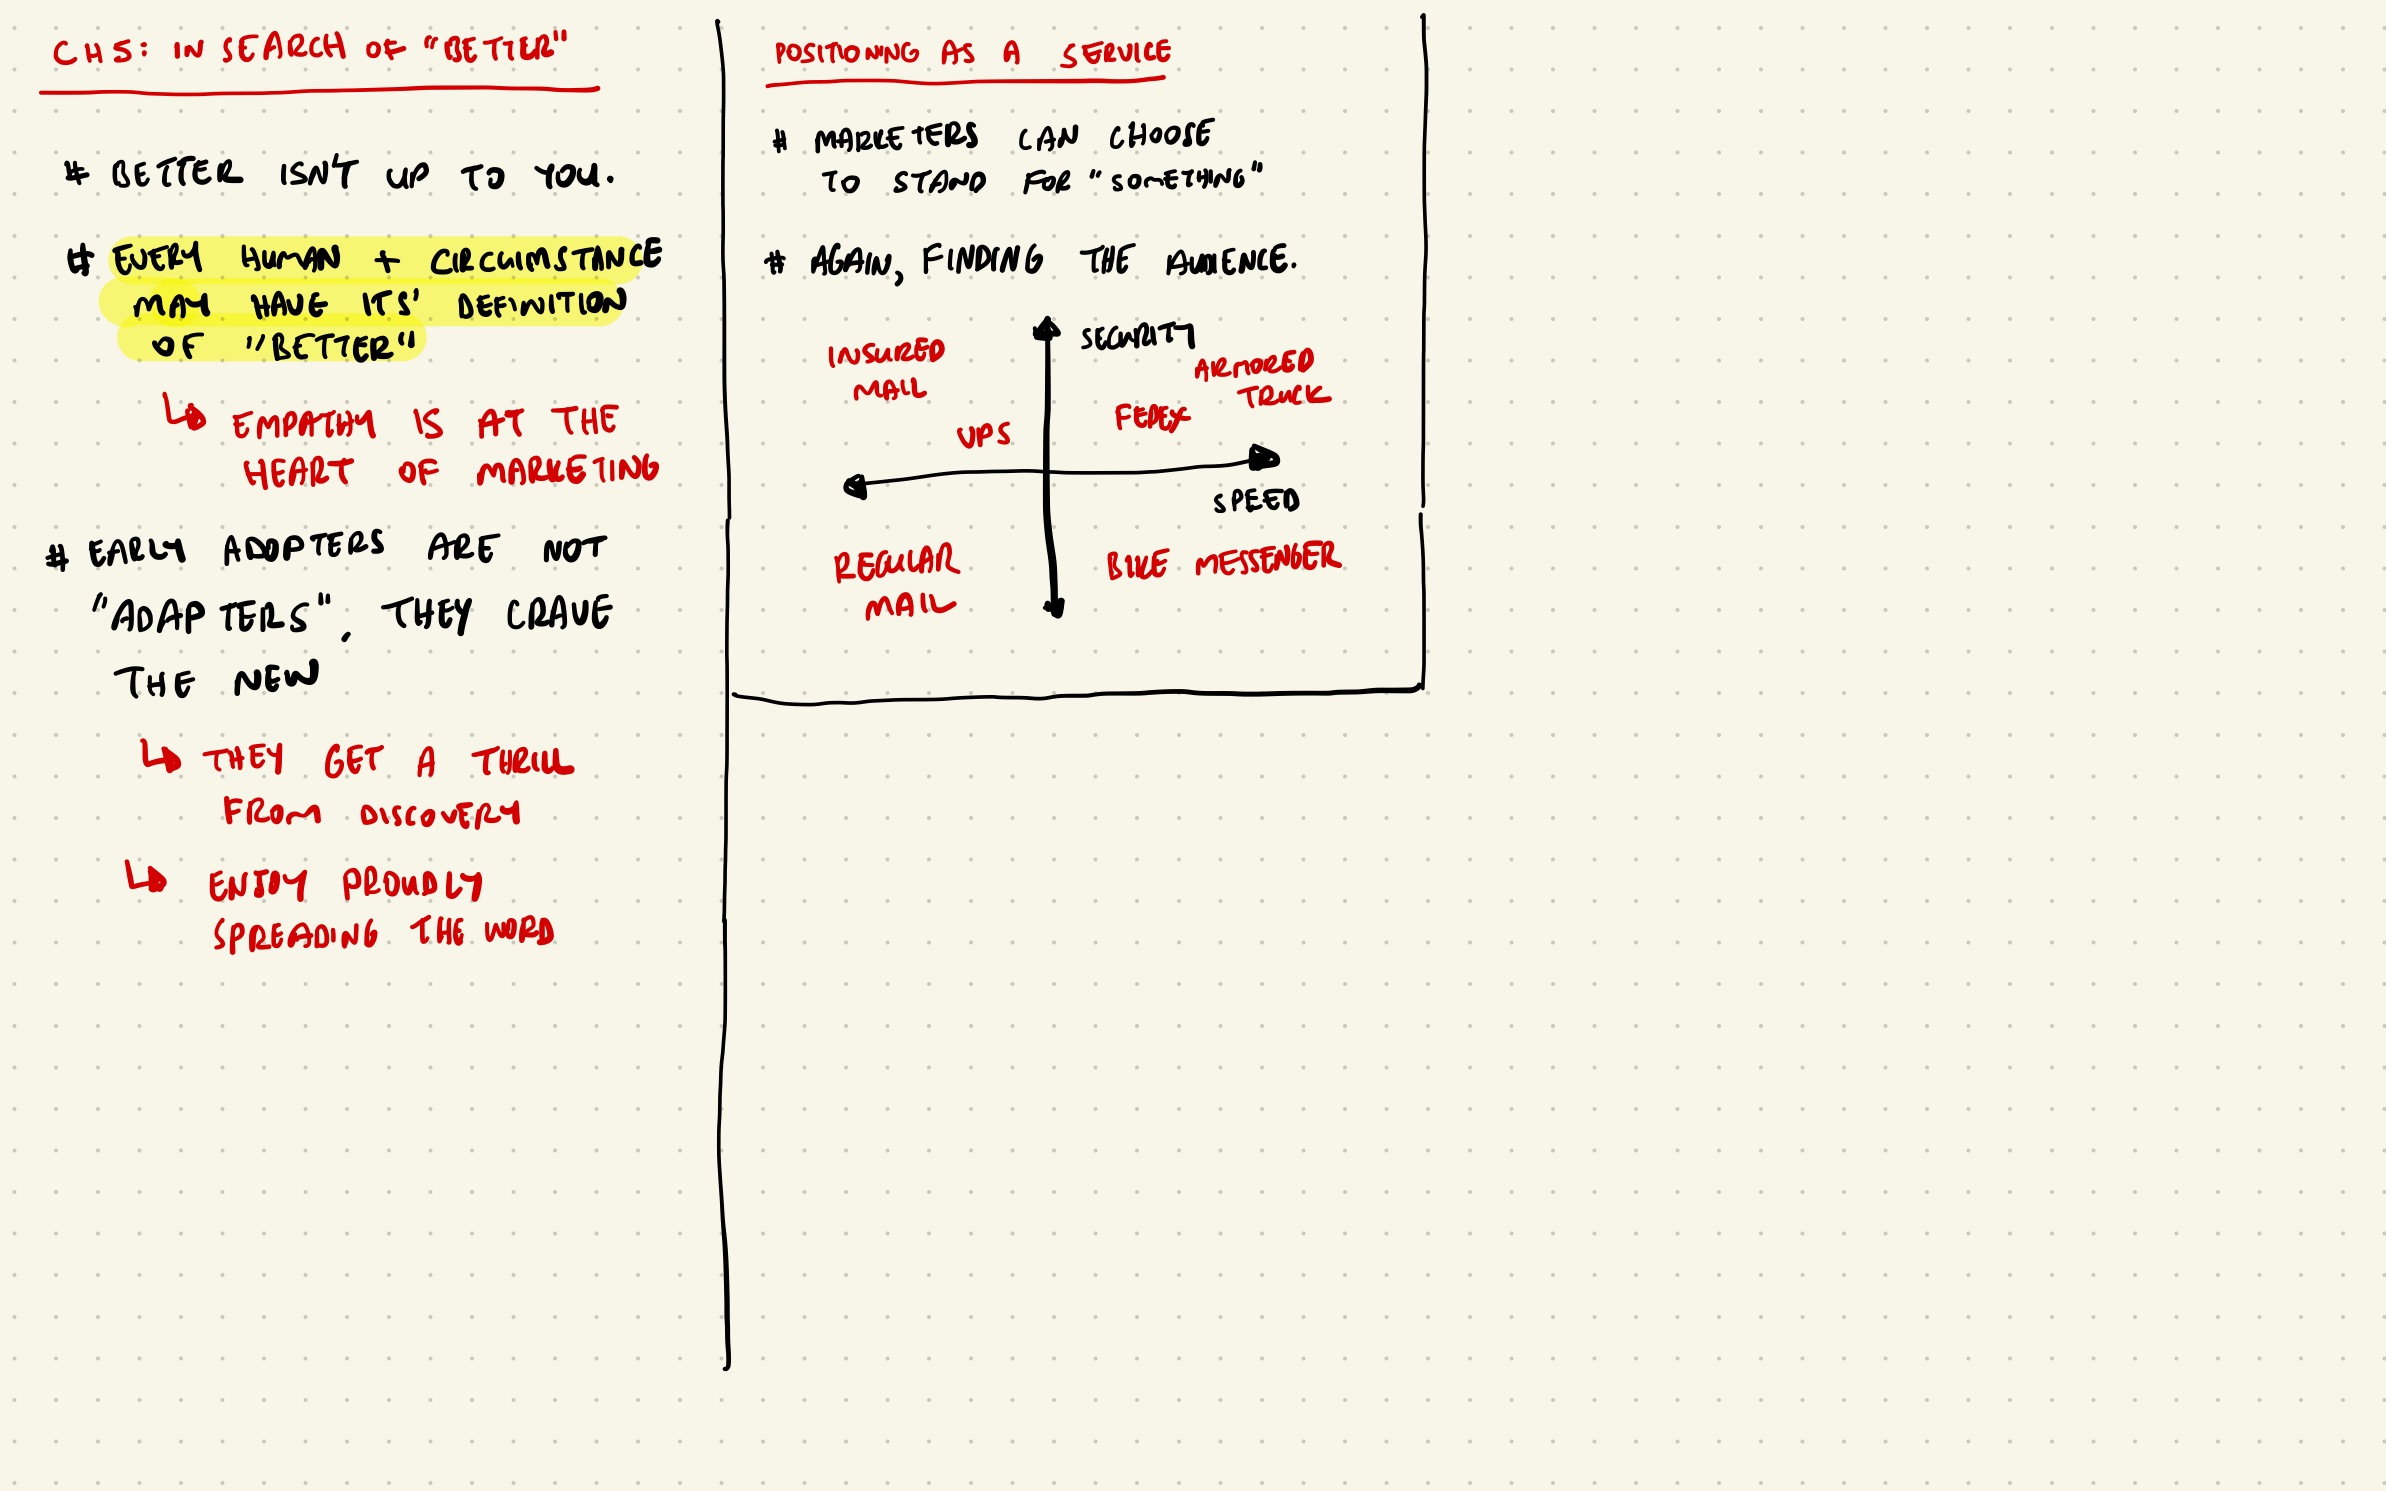 CH 5: IN SEARCH OF "BETTER"
# BETTER ISN'T UP TO YOU.
# EVERY HUMAN + CIRCUIMSTANCE
MAY HAVE ITS' DEFINITION
OF "BETTER"
↳ EMPATHY IS AT THE
HEART OF MARKETING
# EARLY ADOPTERS ARE NOT
"ADAPTERS", THEY CRAVE
THE NEW
↳ THEY GET A THRILL
FROM DISCOVERY
↳ ENJOY PROUDLY
SPREADING THE WORD
POSITIONING AS A SERVICE
# MARKETERS CAN CHOOSE
TO STAND FOR "SOMETHING"
# AGAIN, FINDING THE AUDIENCE.
SECURITY
INSURED
MAIL
ARMORED
TRUCK
UPS
FEDEX
SPEED
REGULAR
MAIL
BIKE MESSENGER